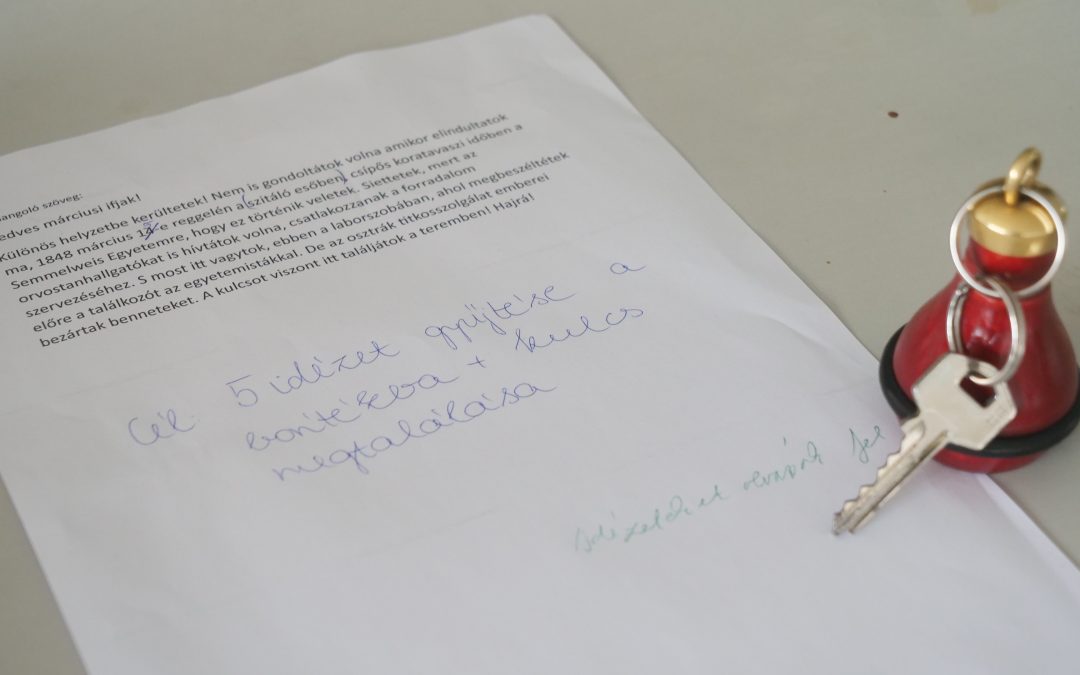 angoló szöveg:
edves márciusi ifjak!
Különös helyzetbe kerültetek! Nem is gondoltátok volna amikor elindultatok
ma, 1848 március 15-e reggelén a (szitáló esőben) csípős koratavaszi időben a
Semmelweis Egyetemre, hogy ez történik veletek. Siettetek, mert az
orvostanhallgatókat is hívtátok volna, csatlakozzanak a forradalom
szervezéséhez. S most itt vagytok, ebben a laborszobában, ahol megbeszéltétek
előre a találkozót az egyetemistákkal. De az osztrák titkosszolgálat emberei
bezártak benneteket. A kulcsot viszont itt találjátok a teremben! Hajrá!
Cél: 5 idézet gyűjtése a
borítékba + kulcs
megtalálása
Idézeteket olvassák fel